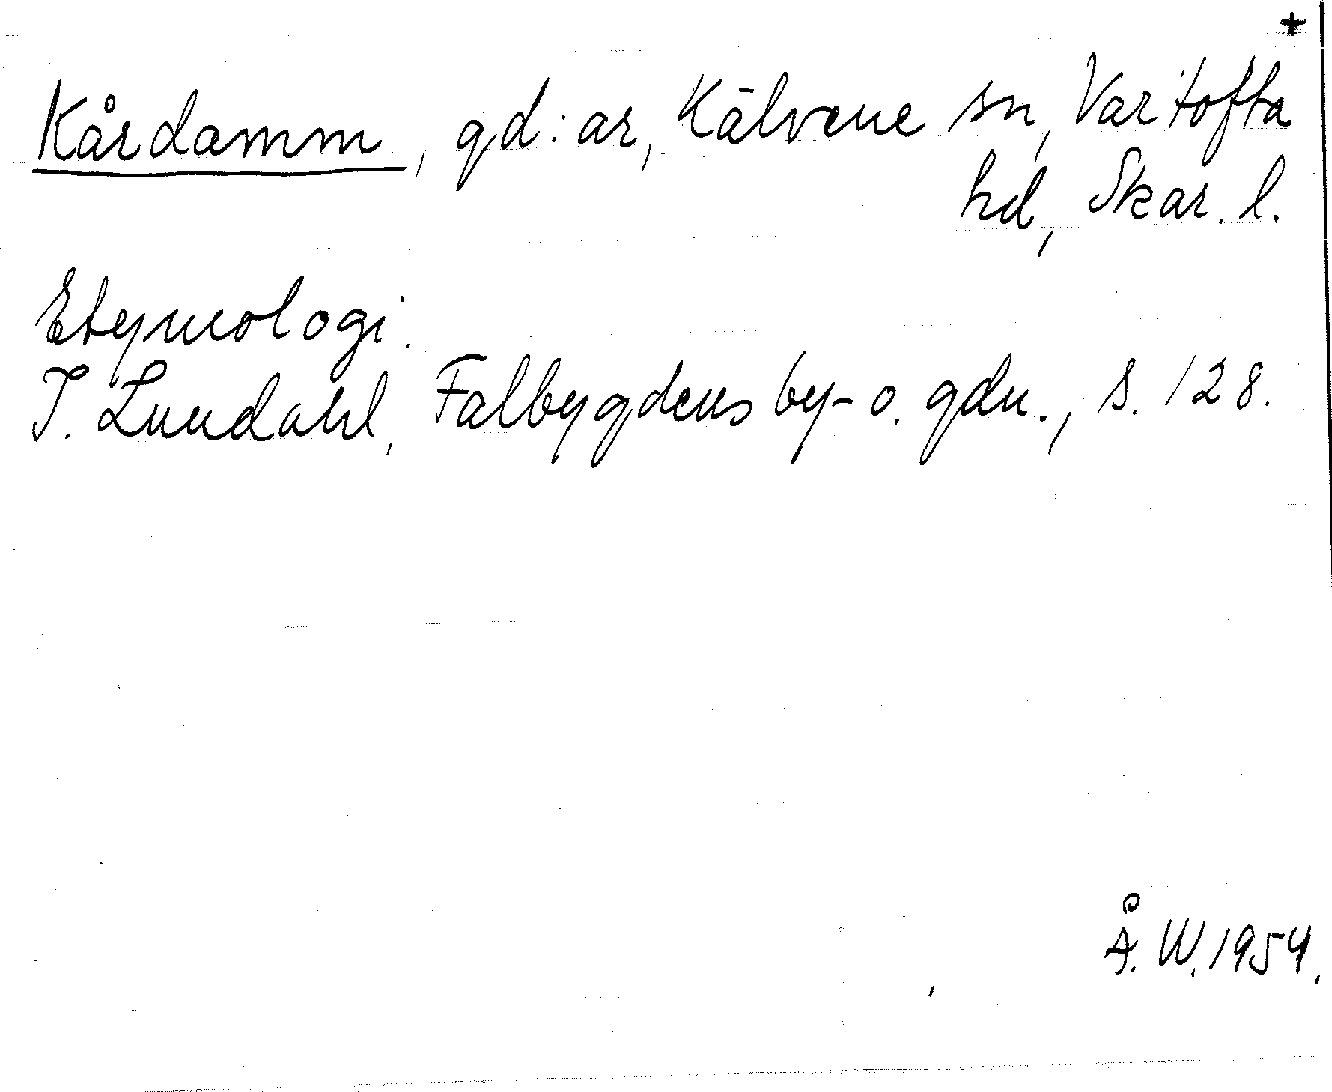 +
Kårdamm, gd:ar, Kälvene sn, Vartofta
hd, Skar. l.
Etymologi.
I. Lundahl, Falbygdens by- o. gdn., s. 128.
Å. W. 1954.